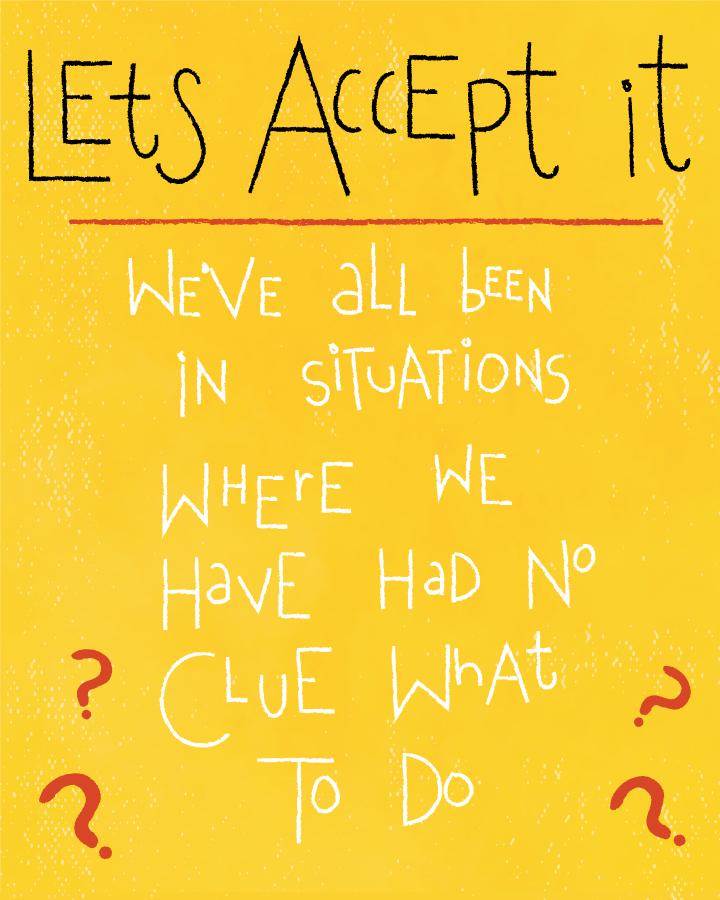 Lets Accept it
We've all been
in situations
Where we
Have Had No
Clue What
To Do
? ?
? ?